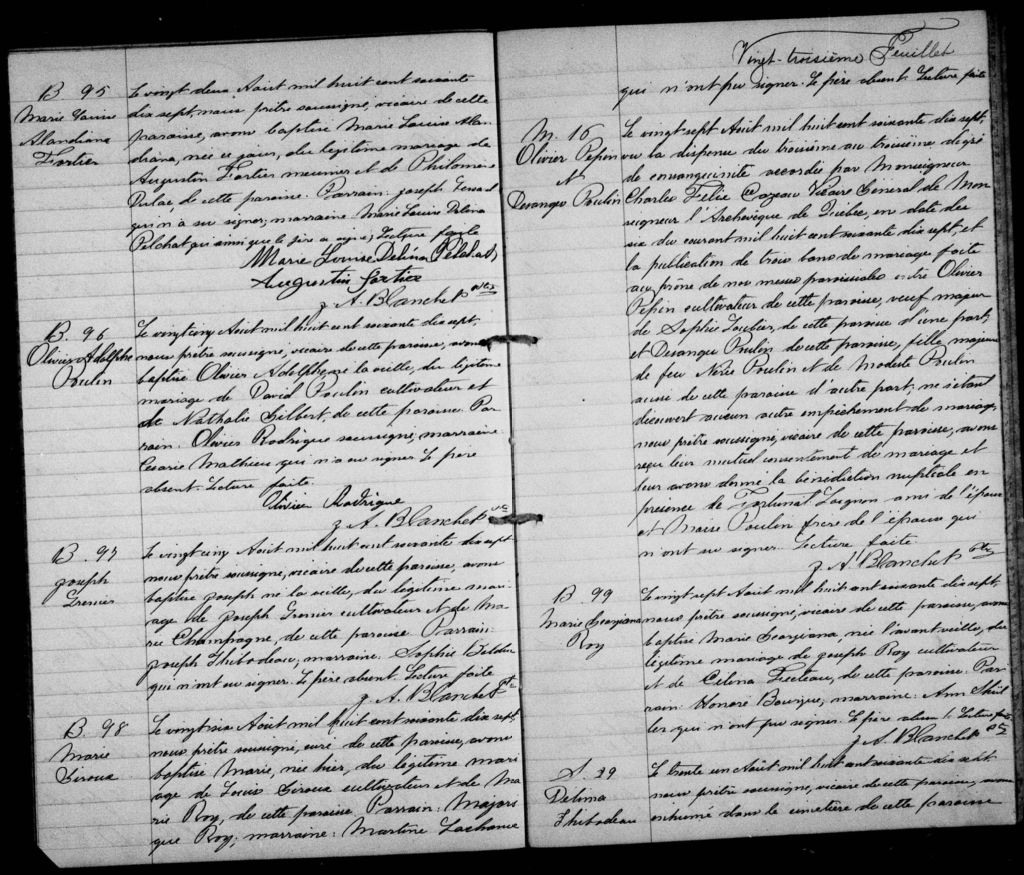 B 95
Marie Louise
Alandiana
Fortier
Le vingt deux Août mil huit cent soixante
dix sept, nous prêtre soussigné, vicaire de cette
paroisse, avons baptisé Marie Louise Alan-
diana, née ce jour, du légitime mariage de
Augustin Fortier meunier et de Philomène
de cette paroisse. Parrain: joseph
qui n'a su signer, marraine Marie Louise Delina
Pelchat qui ainsi que le père a signé, Lecture faite
Marie Louise Delina Pelchat
Augustin fortier
J. A. Blanchet ptre
B. 96
Olivier Adolphe
Poulin
Le vingt cinq Août mil huit cent soixante dix sept,
nous prêtre soussigné, vicaire de cette paroisse, avons
baptisé Olivier Adolphe, né la veille, du légitime
mariage de David Poulin cultivateur et
de Nathalie Gilbert, de cette paroisse. Par-
rain: Olivier Rodrigue soussigné, marraine
Cesarie Mathieu qui n'a su signer. Le père
absent. Lecture faite.
Olivier Rodrigue
J. A. Blanchet ptre
B. 97
joseph
Grenier
Le vingt cinq Août mil huit cent soixante dix sept
nous prêtre soussigné, vicaire de cette paroisse, avons
baptisé joseph né la veille, du légitime mari-
age de joseph Grenier cultivateur et de Ma-
rie Champagne, de cette paroisse. Parrain:
joseph Thibodeau, marraine: Sophie
qui n'ont su signer. Le père absent. Lecture faite
J. A. Blanchet ptre
B. 98
Marie
Giroux
Le vingt six Août mil huit cent soixante dix sept,
nous prêtre soussigné, curé de cette paroisse, avons
baptisé Marie, née hier, du légitime mari-
age de Louis Giroux cultivateur et de Ma-
rie Roy, de cette paroisse. Parrain: Majori-
que Roy; marraine: Martine Lachance
Vingt-troisième Feuillet
qui n'ont pu signer. Le père absent. Lecture faite
M. 16
Olivier Pepin
&
Desanges Poulin
Le vingt sept Août mil huit cent soixante dix sept,
vu la dispense du troisième au troisième dégré
de consanguinité accordée par Monseigneur
Charles Félix Cazeau Vicaire Général de Mon-
seigneur l'Archevêque de Québec, en date du
six du courant mil huit cent soixante dix sept et
la publication de trois bans de mariage faite
au prône de nos messes paroissiales entre Olivier
Pepin cultivateur de cette paroisse, veuf majeur
de Sophie Loubier, de cette paroisse d'une part;
et Desanges Poulin de cette paroisse, fille majeure
de feu Nérée Poulin et de Modeste Poulin
aussi de cette paroisse d'autre part. ne s'étant
découvert aucun autre empêchement de mariage,
nous prêtre soussigné, vicaire de cette paroisse, avons
reçu leur mutuel consentement de mariage et
leur avons donné la bénédiction nuptiale en
présence de Fortunat Gagnon ami de l'époux
et Poulin frère de l'épouse qui
n'ont su signer. Lecture faite
J. A. Blanchet ptre
B. 99
Marie Georgiana
Roy
Le vingt sept Août mil huit cent soixante dix sept
nous prêtre soussigné, vicaire de cette paroisse, avons
baptisé Marie Georgiana, née l'avant veille, du
légitime mariage de joseph Roy cultivateur
et de Celina Fecteau, de cette paroisse. Par-
rain: Honoré Bourque; marraine: Ann
qui n'ont pu signer. Le père absent. Lecture faite
J. A. Blanchet ptre
S. 39
Delima
Thibodeau
Le trente un Août mil huit cent soixante dix sept
nous prêtre soussigné, vicaire de cette paroisse, avons
inhumé dans le cimetière de cette paroisse